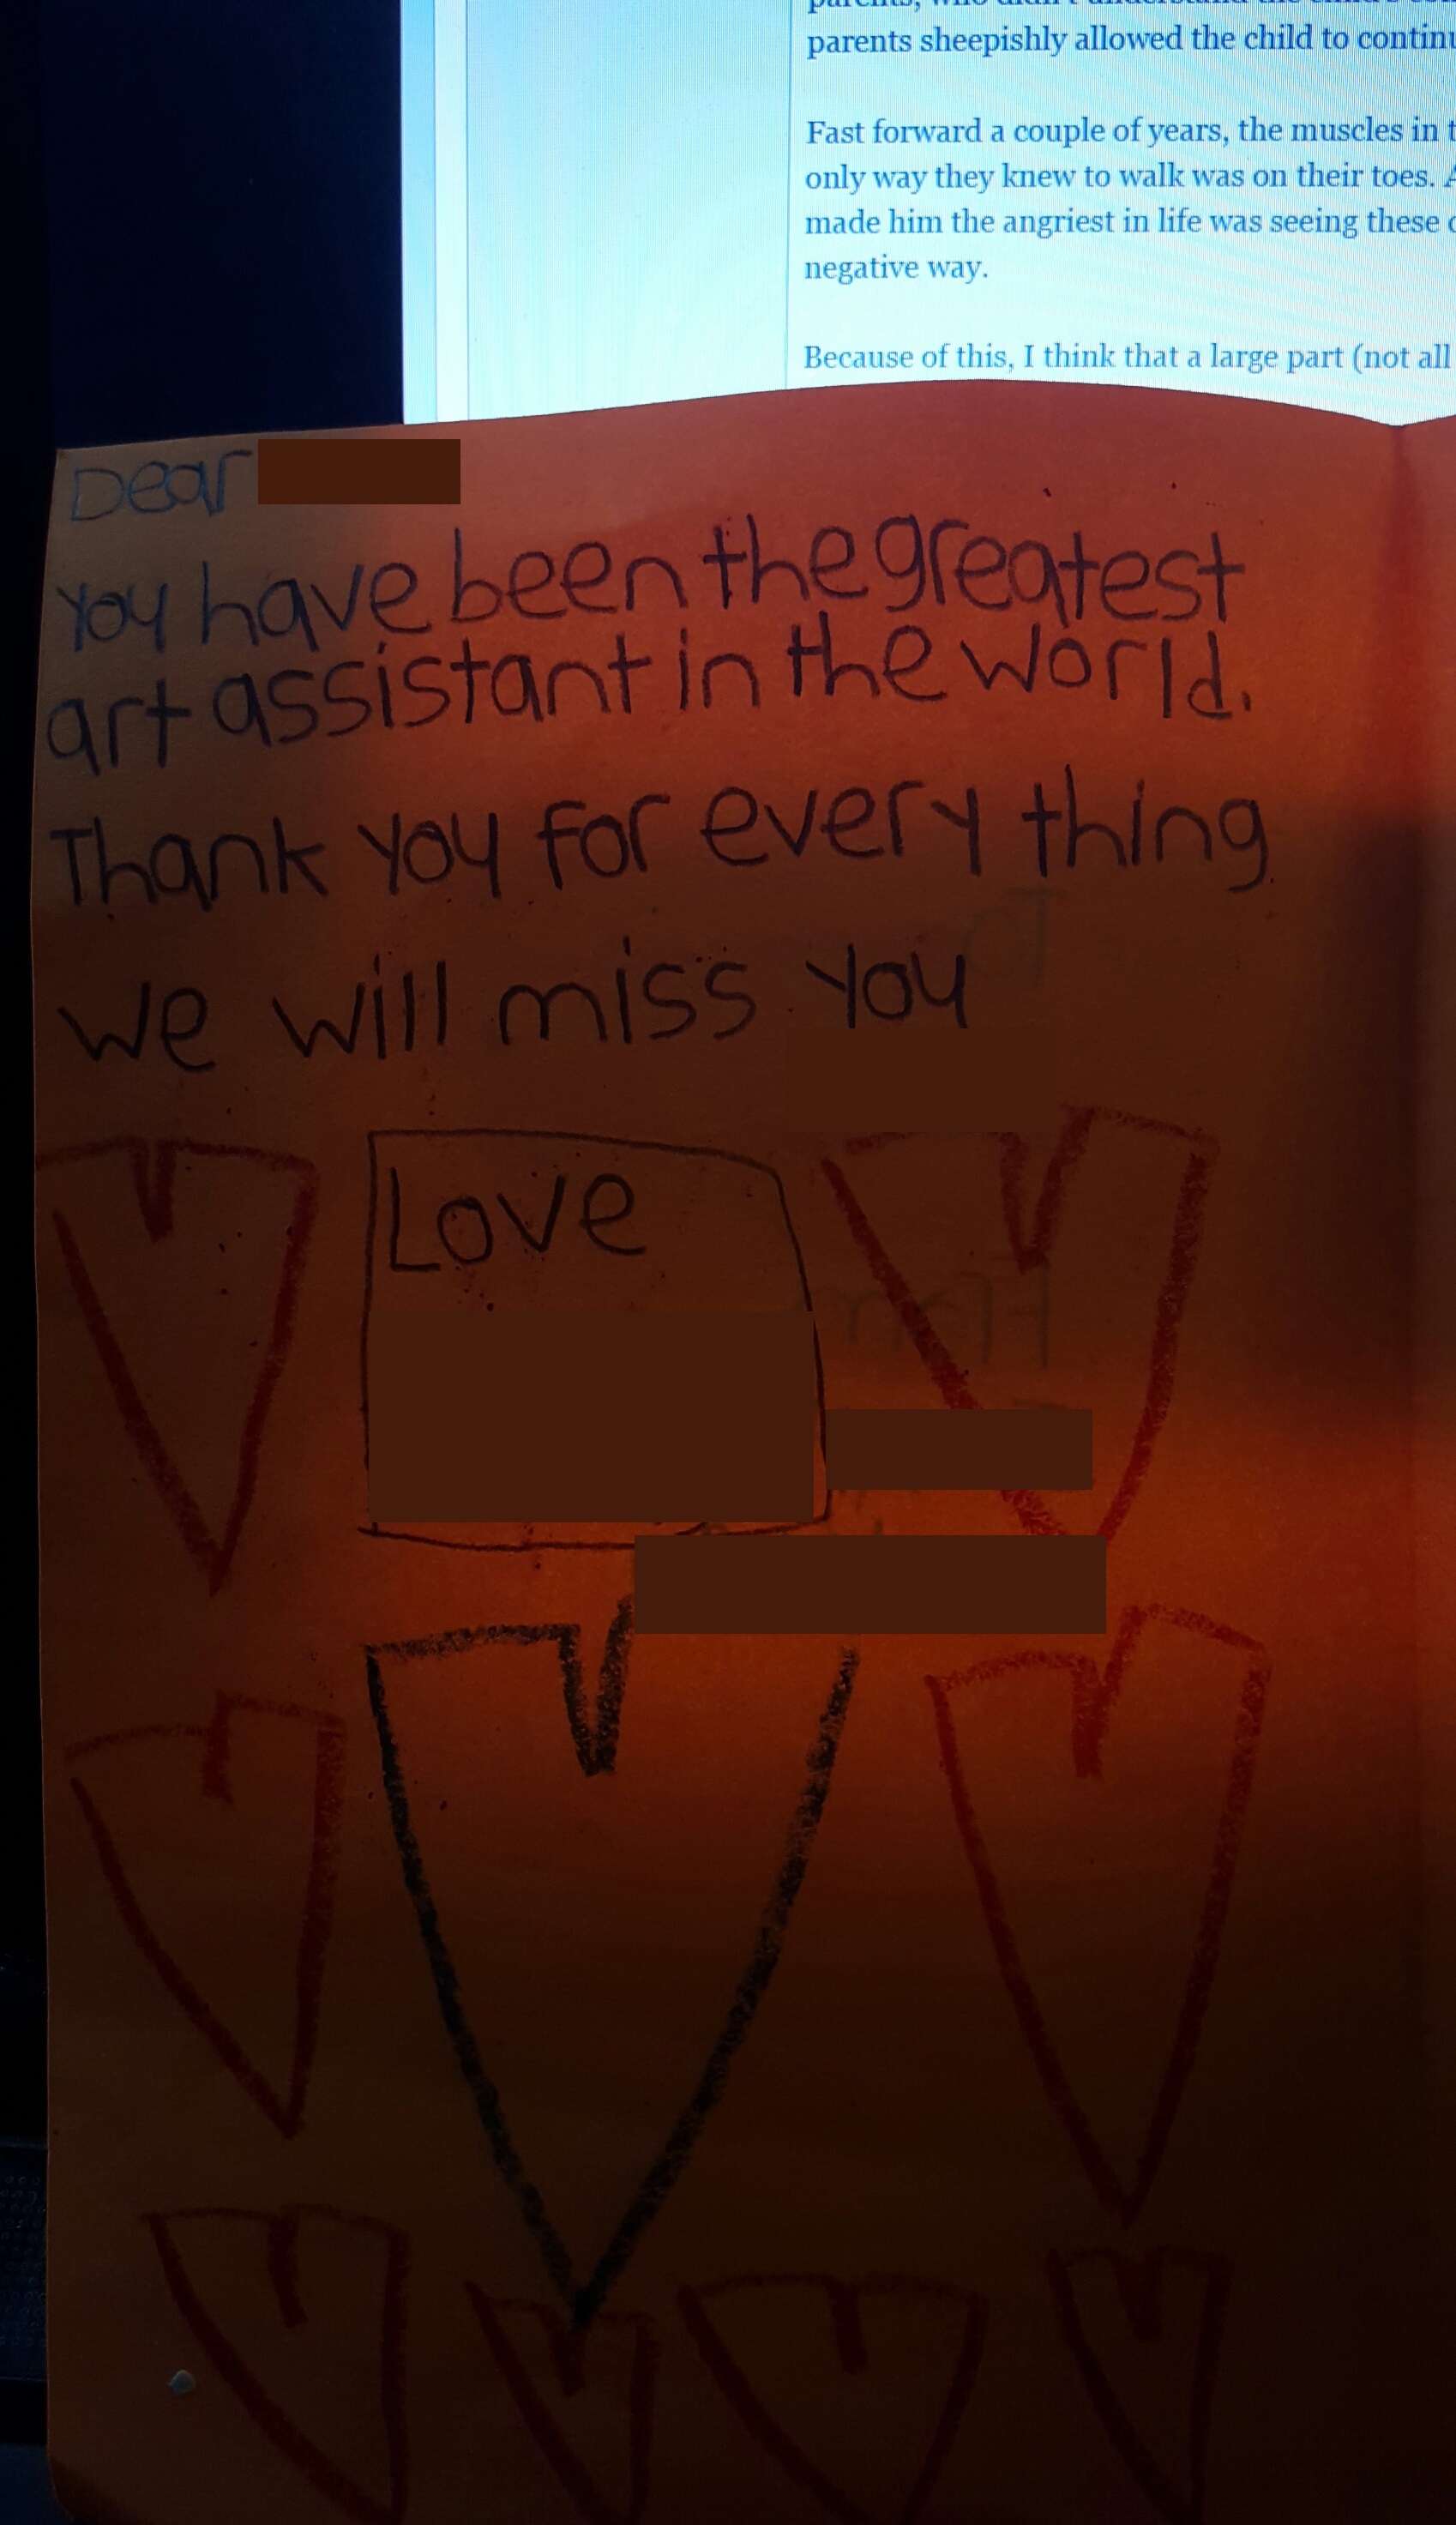 parents sheepishly allowed the child to continu
Fast forward a couple of years, the muscles in t
only way they knew to walk was on their toes. A
made him the angriest in life was seeing these c
negative way.
Because of this, I think that a large part (not all
Dear
you have been the greatest
art assistant in the world.
Thank you for every thing
we will miss you
Love
To
From